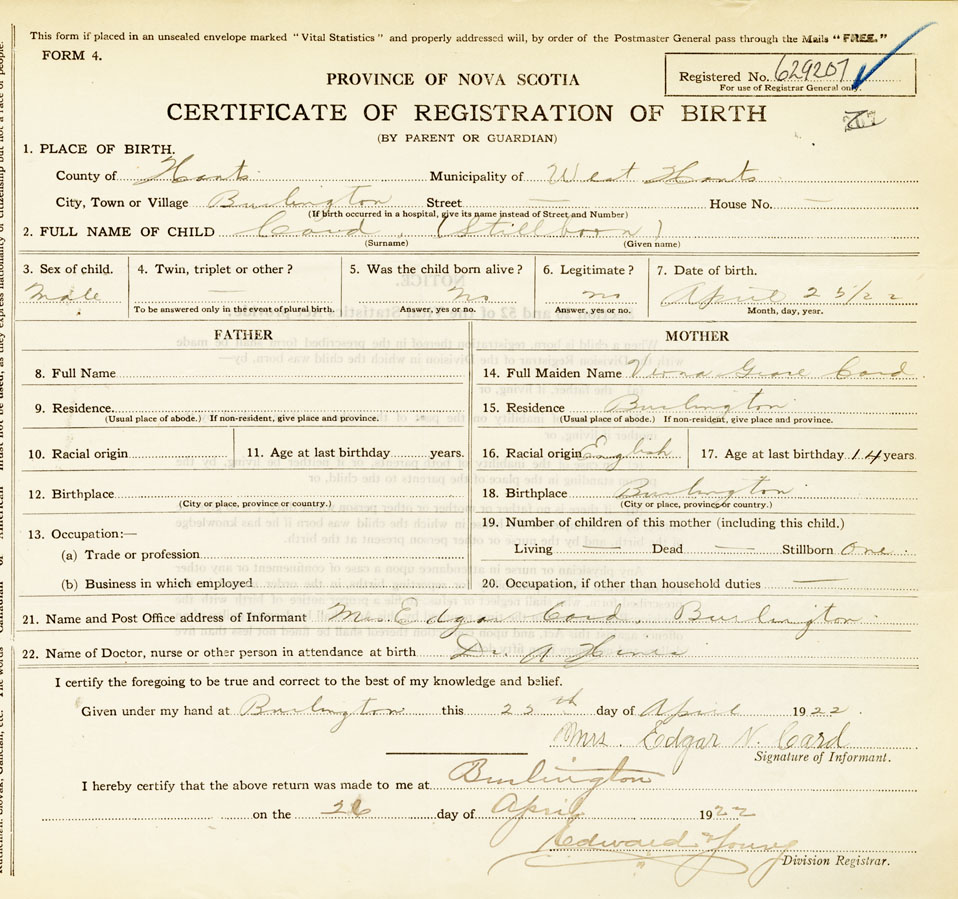 This form if placed in an unsealed envelope marked "Vital Statistics" and properly addressed will, by order of the Postmaster General pass through the Mails "FREE."
FORM 4.
Registered No. 629207
For use of Registrar General only.
PROVINCE OF NOVA SCOTIA
CERTIFICATE OF REGISTRATION OF BIRTH
(BY PARENT OR GUARDIAN)
1. PLACE OF BIRTH.
County of Hants Municipality of West Hants
City, Town or Village Burlington Street — House No. —
(If birth occurred in a hospital, give its name instead of Street and Number)
2. FULL NAME OF CHILD Card, (Stillborn)
(Surname) (Given name)
3. Sex of child. 4. Twin, triplet or other? 5. Was the child born alive? 6. Legitimate? 7. Date of birth.
Male — No no April 25/22
To be answered only in the event of plural birth. Answer, yes or no. Answer, yes or no. Month, day, year.
FATHER MOTHER
8. Full Name
14. Full Maiden Name Verna Grace Card
9. Residence.
(Usual place of abode.) If non-resident, give place and province.
15. Residence Burlington
(Usual place of abode.) If non-resident, give place and province.
10. Racial origin 11. Age at last birthday years.
16. Racial origin English 17. Age at last birthday 14 years
12. Birthplace
(City or place, province or country.)
18. Birthplace Burlington
(City or place, province or country.)
13. Occupation:—
(a) Trade or profession
(b) Business in which employed
19. Number of children of this mother (including this child.)
Living — Dead — Stillborn One.
20. Occupation, if other than household duties —
21. Name and Post Office address of Informant Mrs. Edgar Card, Burlington
22. Name of Doctor, nurse or other person in attendance at birth Dr. A
I certify the foregoing to be true and correct to the best of my knowledge and belief.
Given under my hand at Burlington this 25th day of April 1922.
Mrs. Edgar N. Card
Signature of Informant.
I hereby certify that the above return was made to me at Burlington
on the 26 day of April 1922
Edward Young
Division Registrar.